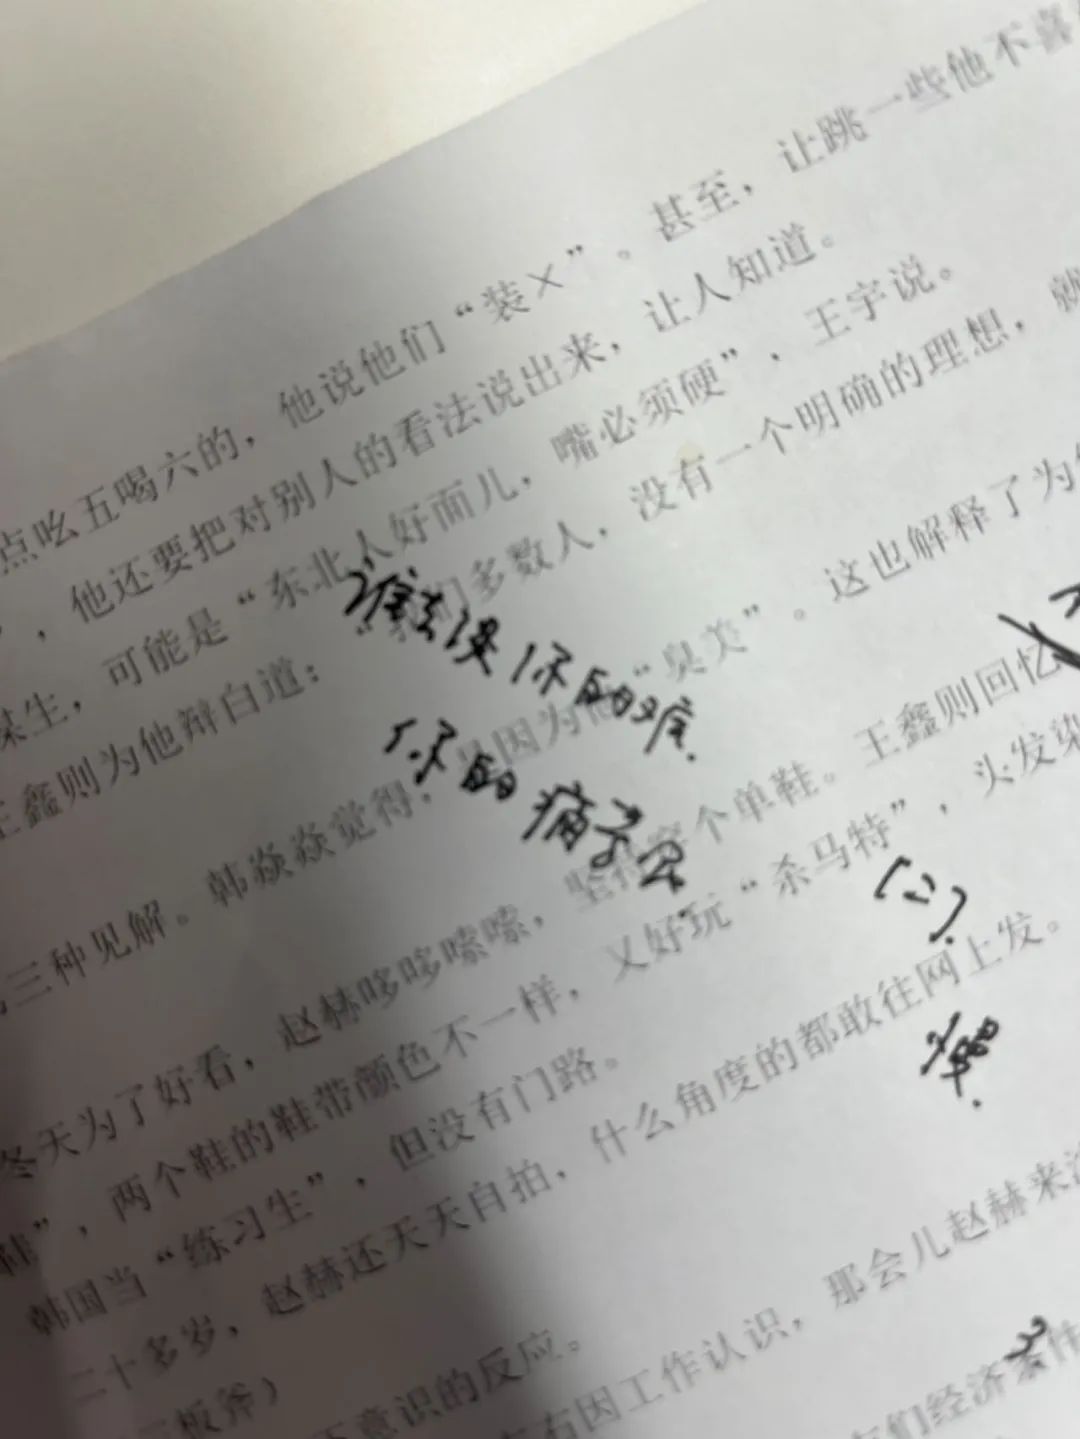 让跳一些他不喜
点吆五喝六的，他说他们“装×”。甚至，
，他还要把对别人的看法说出来，让人知道。
生，可能是“东北人好面儿，嘴必须硬”，王宇说。
王鑫则为他辩白道：“我们多数人，没有一个明确的理想，就
三种见解。韩焱焱觉得，是因为他“臭美”。这也解释了为
冬天为了好看，赵赫哆哆嗦嗦，坚持穿个单鞋。王鑫则回忆
”，两个鞋的鞋带颜色不一样，又好玩“杀马特”，头发染
韩国当“练习生”，但没有门路。
二十多岁，赵赫还天天自拍，什么角度的都敢往网上发。
板斧）
意识的反应。
因工作认识，那会儿赵赫来
们经济条件
你的
你的痛
(二).